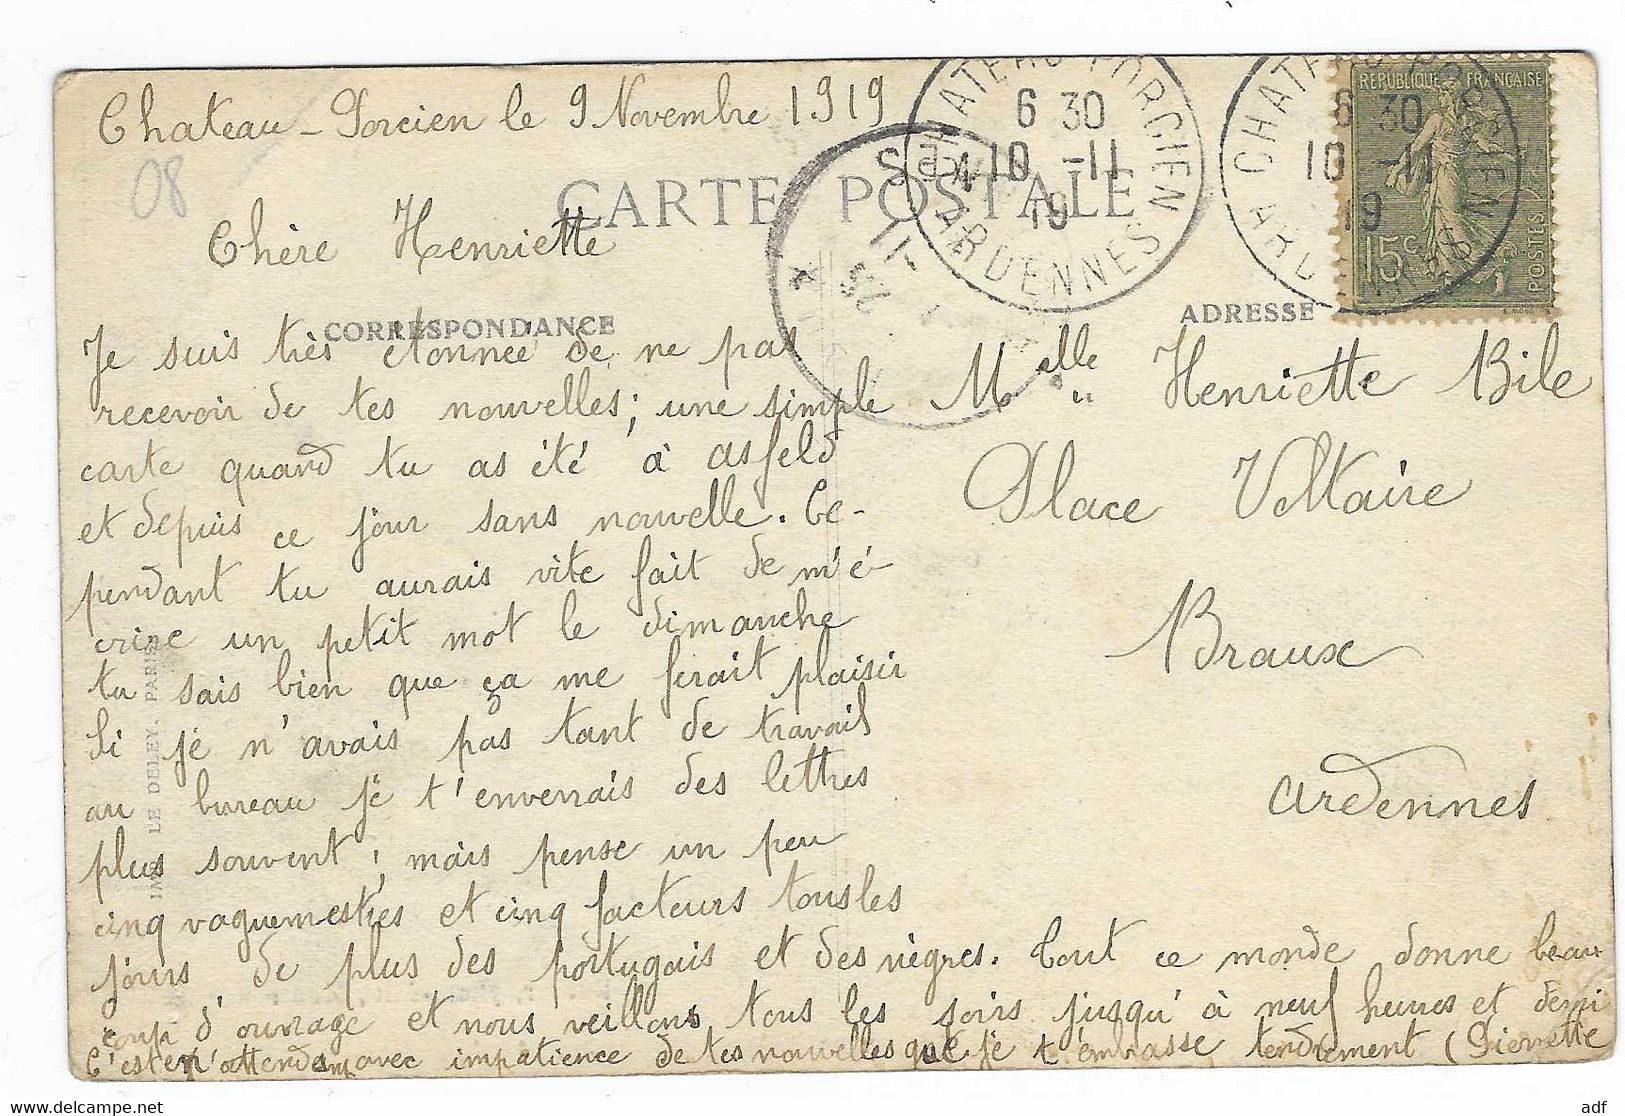 Chateau-Porcien le 9 Novembre 1919
08
CARTE POSTALE
Chère Henriette
CORRESPONDANCE
Je suis très étonnée de ne pas
recevoir de tes nouvelles; une simple
carte quand tu as été à asfeld
et depuis ce jour sans nouvelle. Ce-
pendant tu aurais vite fait de m'é-
crire un petit mot le dimanche
tu sais bien que ça me ferait plaisir
Si je n'avais pas tant de travail
au bureau je t'enverrais des lettres
plus souvent, mais pense un peu
cinq vaguemestres et cinq facteurs tous les
jours de plus des portugais et des nègres. Tout ce monde donne beau
coup d'ouvrage et nous veillons tous les soirs jusqu'à neuf heures et demi
C'est n'attends avec impatience de tes nouvelles que je t'embrasse tendrement (Pierrette
IMP. LE DELEY. PARIS
CHATEAU-PORCIEN
6 30
10 -11
19
ARDENNES
CHATEAU-PORCIEN
6 30
10 -11
19
ARDENNES
REPUBLIQUE FRANÇAISE
15c
POSTES
11
25
ADRESSE
Melle Henriette Bile
Place Voltaire
Braux
Ardennes
adf